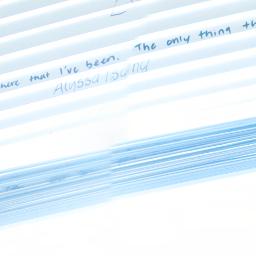 here that I've been. The only thing th
Alyssa